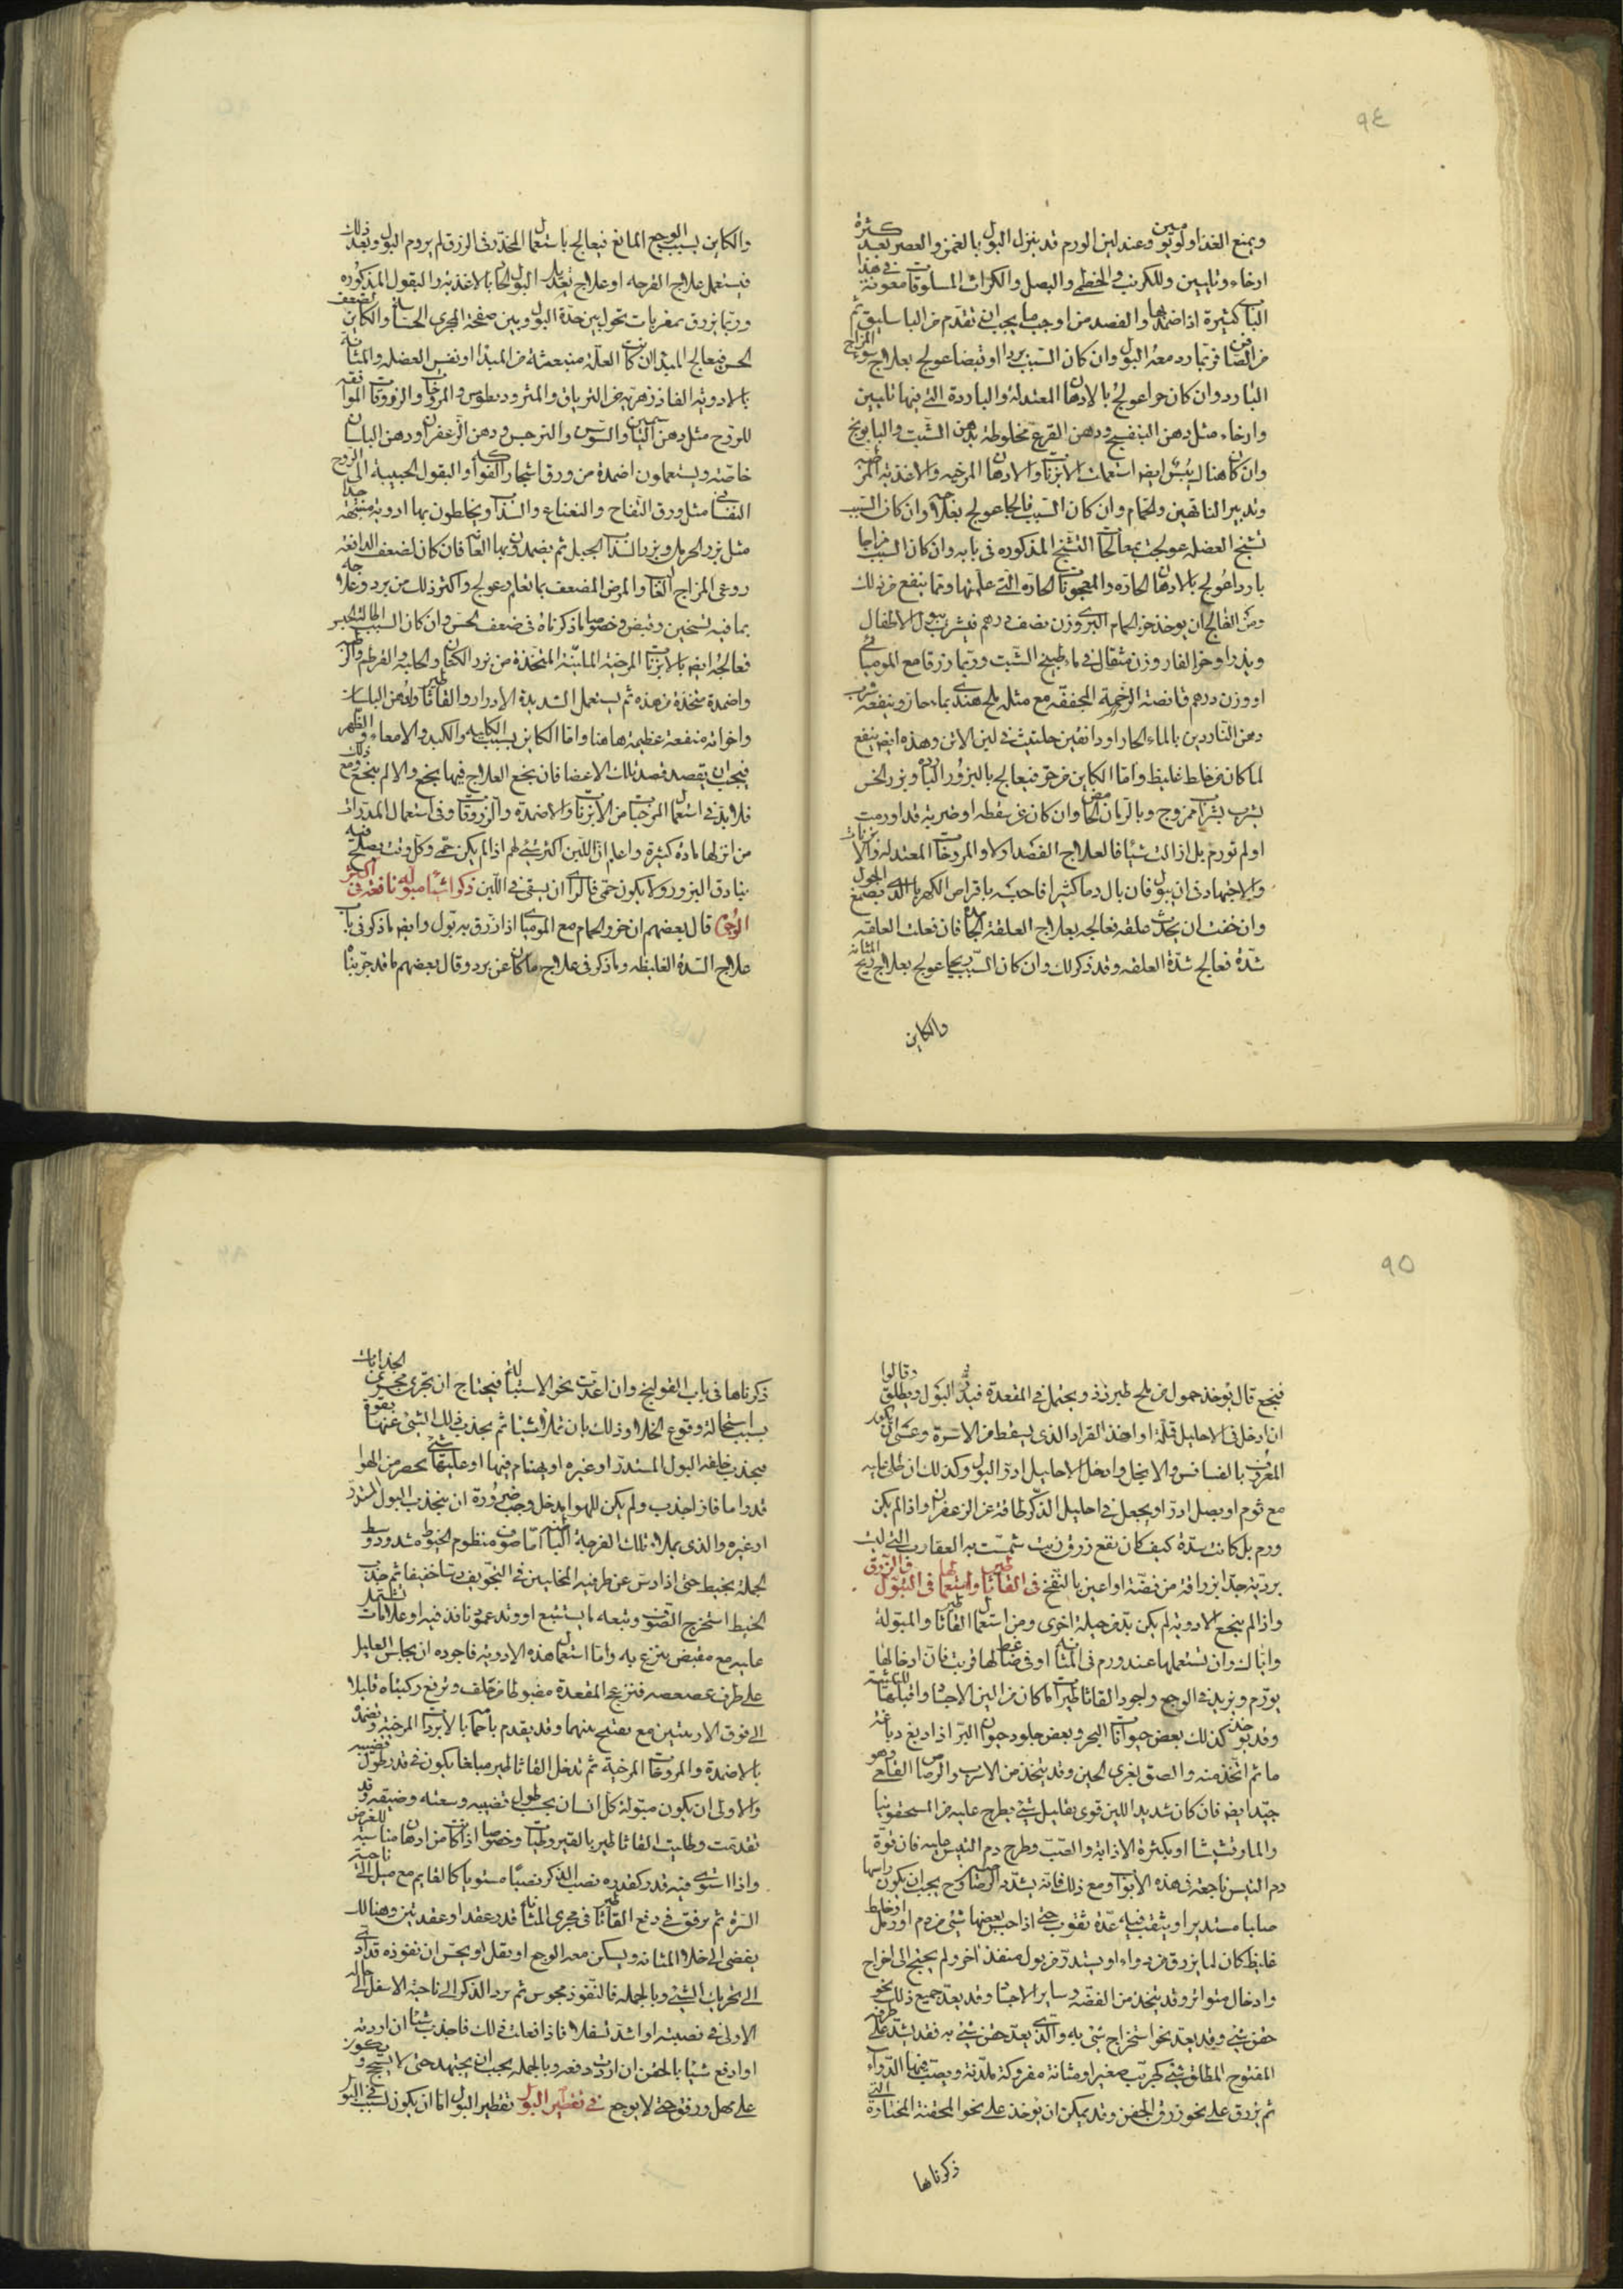 ٩٤
ويمنع الغذا ولو يومين وعند لين الورم قد ينزل البول بالغمز والعصر بعد كثرة
ارخاء وتليين وللكرنب والخطمى والبصل والكراث المسلوقات فى هذا معونة
كثيرة اذا ضمد بها والفصد من اوجب ما يجب ان تقدم من الباسليق ثم
من الصافن فربما رد معه البول وان كان السبب بردا او قبضا عولج بعلاج سوء المزاج
البارد وان كان حرا عولج بالادهان المعتدلة والباردة التى فيها تليين
وارخاء مثل دهن البنفسج ودهن القرع مخلوطة بدهن الشبت والبابونج
وان كان هنالك يبس ايضا استعملت الابزنات والادهان المرخيه والاغذيه المرطبه
وتدبير الناقهين والحمام وان كان السبب فالجا عولج بعلاجه وان كان السبب
تشنج العضله عولجت بمعالجات التشنج المذكوره فى بابه وان كان السبب مزاجا
باردا عولج بالادهان الحارة والمعجونات الحارة التى علمتها ومما ينفع من ذلك
ومن الفالج ان يوخذ خزء الحمام البرى وزن نصف درهم فيشرب ببول الاطفال
او وزن درهم قانصة الرخمة المجففة مع مثله ملح هندى بماء حار وينفعه شرب
دهن الناردين بالماء الحار او دانقين حلتيت فى لبن الاتن وهذه ايضا ينفع
لما كان من خلط غليظ واما الكاين من حر فيعالج بالبزور الباردة وبزر الخس
بشرب بشراب ممزوج وبالرمان الحامض وان كان عن سقطه او ضربة قد اورمت
او لم تورم بل ازالت شيئا فالعلاج الفصد اولا والمروخات المعتدله والابزنات
والاجتهاد فى ان يبول فان بال دما كثيرا فاحبسه باقراص الكهربا الذى بصمغ الجوز
وان خفت ان يحدث علقه فعالجه بعلاج العلقة الجامده فان فعلت العلقه
سدة فعالج سدة العلقه وقد ذكر لك وان كان السبب ريحا عولج بعلاج ريح المثانه
والكاين
والكاين بسبب الوجع المانع فيعالج باستعمال المخدر فى الزرق لم يردم البول وبعد ذلك
فيستعمل علاج القرحه او علاج تعديل البول الحاد بالاغذيه والبقول المذكوره
وربما يزرق بمغريات تحول بين حدة البول وبين صفحة المجرى الحساسة والكاين لضعف
الحس فيعالج المبدا ان كانت العلة منبعثه من المبدا او نفس العضله والمثانه
بالادويه الفاذزهريه من الترياق والمثروديطوس والمروخات والزروقات الموافقه
للروح مثل دهن الياسمين والسوسن والنرجس ودهن الزعفران ودهن البلسان
خاصة ويستعملون اضمدة من ورق اشجار الفواكه والبقول الحبيبة الى الروح
النفسانى مثل ورق التفاح والنعناع والسذاب ويخلطون بها ادوية منبهة جدا
مثل بزر الحرمل وبزر السذاب الجبلى ثم يضمدون بها العانة فان كان لضعف الدافعة
روعى المزاج الغالب والمرض المضعف بما تعلم وعولج واكثر ذلك من برد وعلاجه
بما فيه تسخين وقبض وخصوصا ما ذكرناه فى ضعف الحس وان كان السبب اطالة الحبس
فعالجه ايضا بالابزنات المرخية الملينة المتخذة من بزر الكتان والحلبة والقرطم والرطبه
واضمدة متخذة من هذه ثم يستعمل الشديدة الادرار والقاثاطير ولدهن البلسان
واخواته منفعة عظيمة هاهنا واما الكاين بسبب الكليه والكبد والامعاء والظهر
فيجب ان يقصد قصد تلك الاعضا فان نجع العلاج فيها نجع والا لم ينجع ومع ذلك
فلا بد فى استعمال المرخيات من الابزنات والاضمدة والزروقات وفى استعمال المدرات
من انزلها مادة كثيرة واعلم ان اللبن اكثر شئ لهم اذا لم يكن حمى وكل وقت يصلح فيه
بنادق البزور ولا يكون حمى فالراى ان يسقى فى اللبن ذكر اشياء مبوله نافعة فى اكثر
الوجوه قال بعضهم ان خزو الحمام مع الموميائى اذا زرق به بول وايضا ما ذكر فى باب
علاج السدة الغليظه وما ذكر فى علاج ما كان عن برد وقال بعضهم ما قد جربناه
٩٥
فنجع قال يوخذ حمول من ملح طبرزذ ويحتمل فى المقعدة فيدر البول ويطلق وقالوا
ان ادخل فى الاحليل قملة او اخذ القراد الذى يسقط من الاسرة وعسى ان يكون
المعروف بالفسافس والانجل وادخل الاحليل ادر البول وكذلك ان طلى عليه
مع ثوم او بصل ادر او يجعل فى احليل الذكر طاقة من الزعفران واذا لم يكن
ورم بل كانت سدة كيف كان نفع زرق زيت شمست به العقارب التى ليست
بردية جدا بزراقة من فضة او اعين بالنفخ فى القاثاطير واستعمالها فى التبول فى الزرق
واذا لم ينجع الادوية لم يكن بد من حيلة اخرى ومن استعمال القاثاطير والمبولة
واياك وان تستعملها عند ورم فى المثانه او فى ضاغط لها قريب فان ادخالها
يورم ويزيد فى الوجع واجود القاثاطير ما كان من الين الاجساد واقبلها للتثنية
وقد يوجد كذلك بعض حيوانات البحر وبعض جلود حيوان البر اذا دبغ دباغه
ما ثم اتخذ منه والصق بغرى الجبن وقد يتخذ من الاسرب والرصاص القلعى وهو
جيد ايضا فان كان شديد اللين قوى بقليل شئ يطرح عليه من المسحقونيا
والمارقشيشا او بكثرة الاذابة والصب وطرح دم التيس عليه فان قوة
دم التيس ناجعة فى هذه الابواب ومع ذلك فانه يشدد الرصاصين ويجب ان يكون راسها
صلبا مستديرا ويثقب فيه عدة ثقوب حتى اذا حبس بعضها شئ من دم او رمل او خلط
غليظ كان لما يزرق من دواء او يستدر من بول منفذ اخر ولم يحتج الى اخراج
وادخال متواتر وقد يتخذ من الفضة وساير الاجساد وقد يعد جميع ذلك نحو
حقن شئ وقد يعد نحو استخراج شئ به والذى يعد حقن شئ به فقد يشد على طرفه
المفتوح المطلق شئ كجريب صغير او مثانة مفروكة ملدنة ويصب فيها الدواء
ثم يزرق على نحو زرق الحقن وقد يمكن ان يوخذ على نحو المحقنة المختارة التى
ذكرناها
ذكرناها فى باب القولنج وان اعدت نحو الاستبالة فيحتاج ان تجرى مجرى الجذابات
بسبب استحالة وقوع الخلا وذلك بان تملا شيئا ثم يجذب ذلك الشئ عنها بقوة
فيجذب خلفه البول المستدر او غيره او يهندم فيها او عليها شئ يحصر من الهوا
قدرا ما فاذا جذب ولم يكن للهوا مدخل وجب ضرورة ان ينجذب البول المستدر
او غيره والذى يملا تلك الفرجة الباطنة اما صوف منظوم الخيوط مشدود وسط
الجملة بخيط حتى اذا دس عن طرفيه المخليين فى التجويف دسا خفيفا ثم جذب
الخيط استخرج الصوف وتبعه ما يستتبع او وتد عمود نافذ فيه او علامات تشتمل
عليه مع مقبض ينزع به واما استعمال هذه الادوية فاجوده ان يجلس العليل
على طرف عصعصه فتزعج المقعدة مضبوطا من خلف وترفع ركبتاه قليلا
الى فوق الاربيتين مع تفتيح بينهما وقد يقدم باحما بالابزنات المرخية وتضمده
بالاضمدة والمروخات المرخية ثم تدخل القاثاطير مبلغا يكون فى قدر طول قضيبه
والاولى ان يكون مبولة كل انسان بحسب طول قضيبه وسعته وضيقه وقد
تقدمت وطليت القاثاطير بالقيروطيات وخصوصا اذا كانت من ادهان مناسبة للغرض
واذا استوى فيه قدر كقدره نصب الذكر نصبا مستويا كالقايم مع ميل الى ناحية
السرة ثم يرفق فى دفع القاثاطير فى مجرى المثانه قدر عقد او عقدتين وهنالك
يفضى الى خلا المثانه ويسكن معه الوجع او يقل او يحس ان نفوذه قد ادى
الى تحريك الشئ وبالجملة فالنفوذ محسوس ثم يرد الذكر الى ناحية الاسفل الى حاله
الاولى فى نصبته او اشد تسفلا فاذا فعلت ذلك فاجذب شيئا ان اردته
او ادفع شيئا بالحقن ان اردت دفعه وبالجملة يجب ان يجتهد حتى لا يسحج ويكون
على مهل ورفق حتى لا يوجع فى تقطير البول تقطير البول اما ان يكون لسبب فى البول